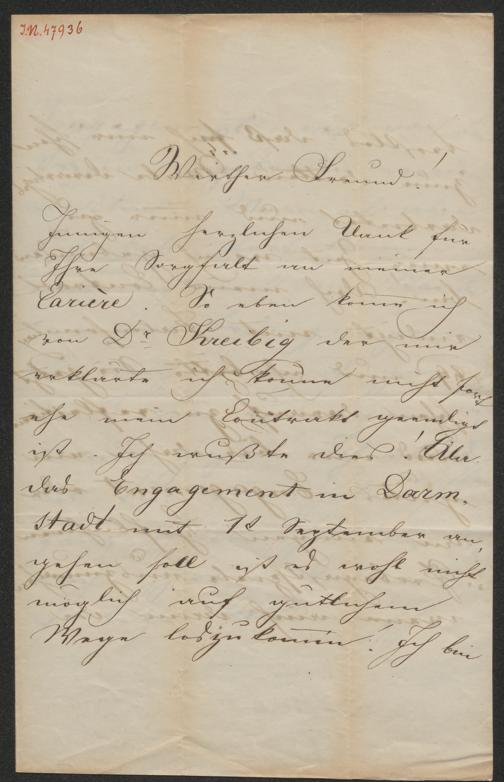 I.N. 47936
Werther Freund!
Innigen herzlichen Dank für
Ihre Sorgfalt an meiner
Carière. So eben kome ich
von Dr Kreibig der mir
erklärte ich könne nicht fort
ehe mein Contrakt geendigt
ist. Ich wußte dies.
das Engagement in Darm-
stadt mit 1t September an,
gehen soll ist es wohl nicht
möglich auf gutlichem
Wege loszukommen! Ich bin